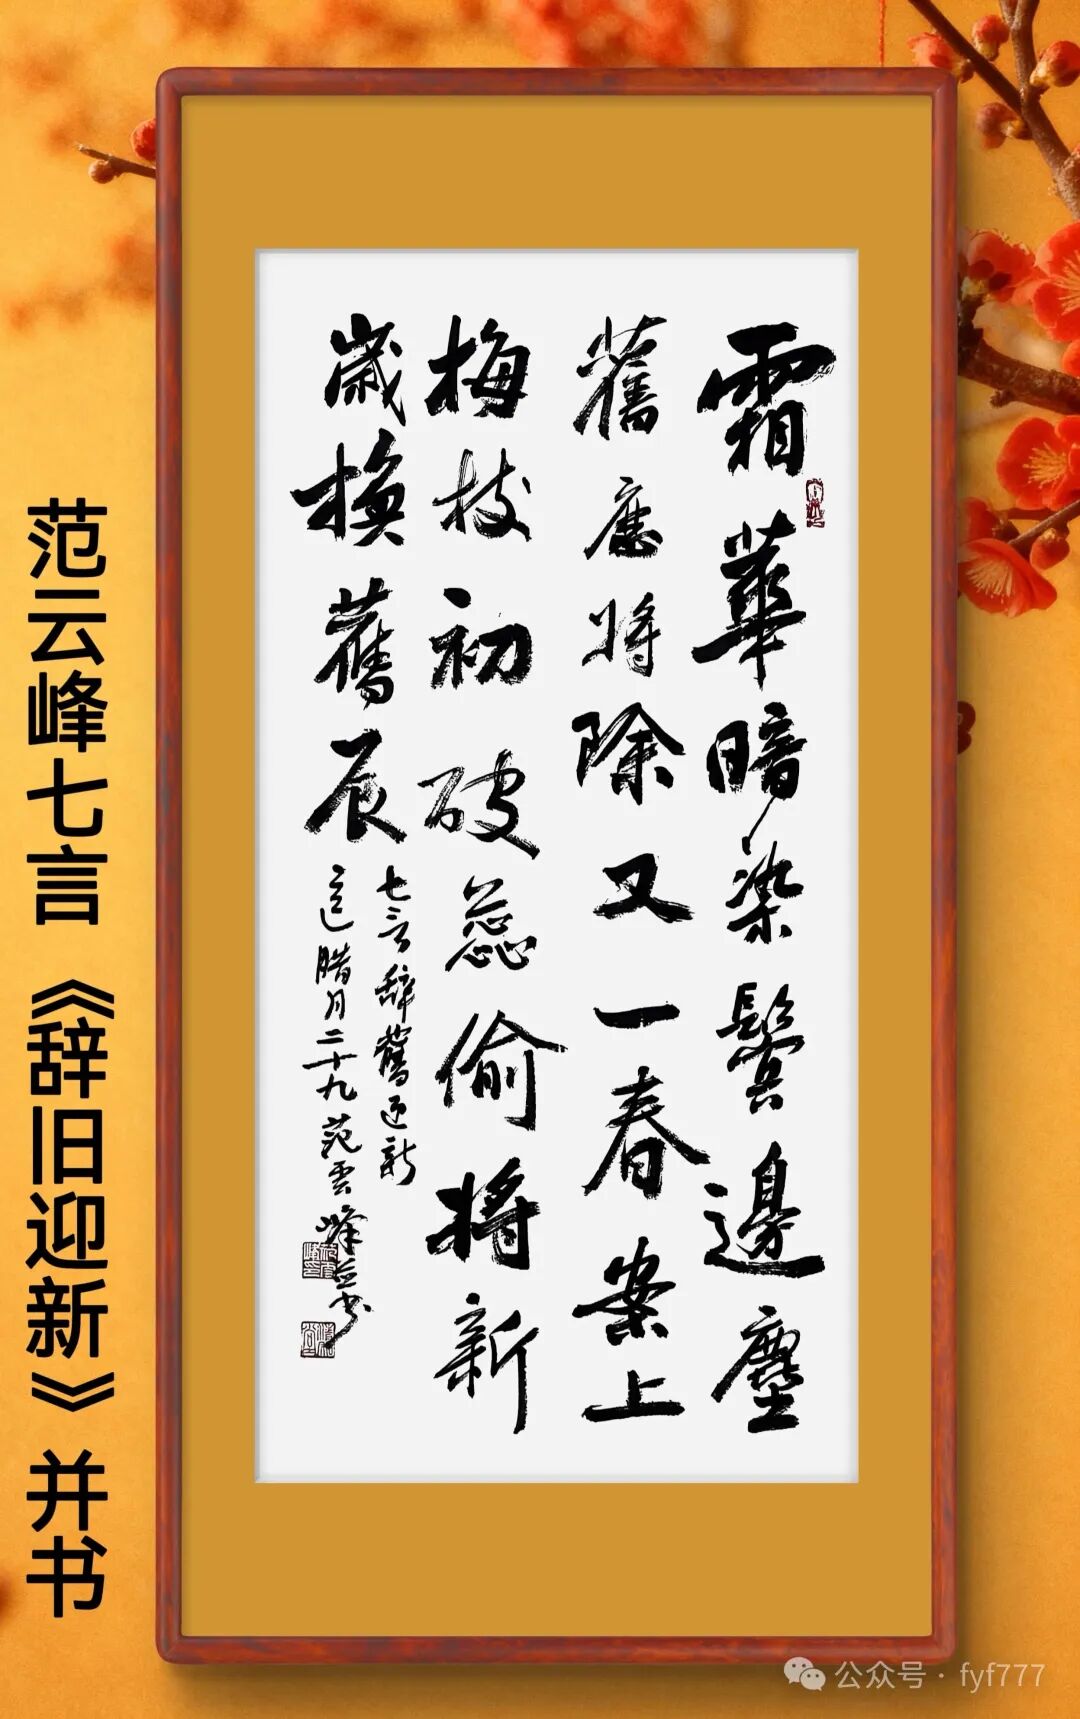 霜華暗染鬢邊塵
舊應將除又一春案上
梅枝初破蕊偷將新
歲換舊辰
七言辞舊迎新
腊月二十九范雲峰並书
范云峰七言《辞旧迎新》并书
公众号 · fyf777